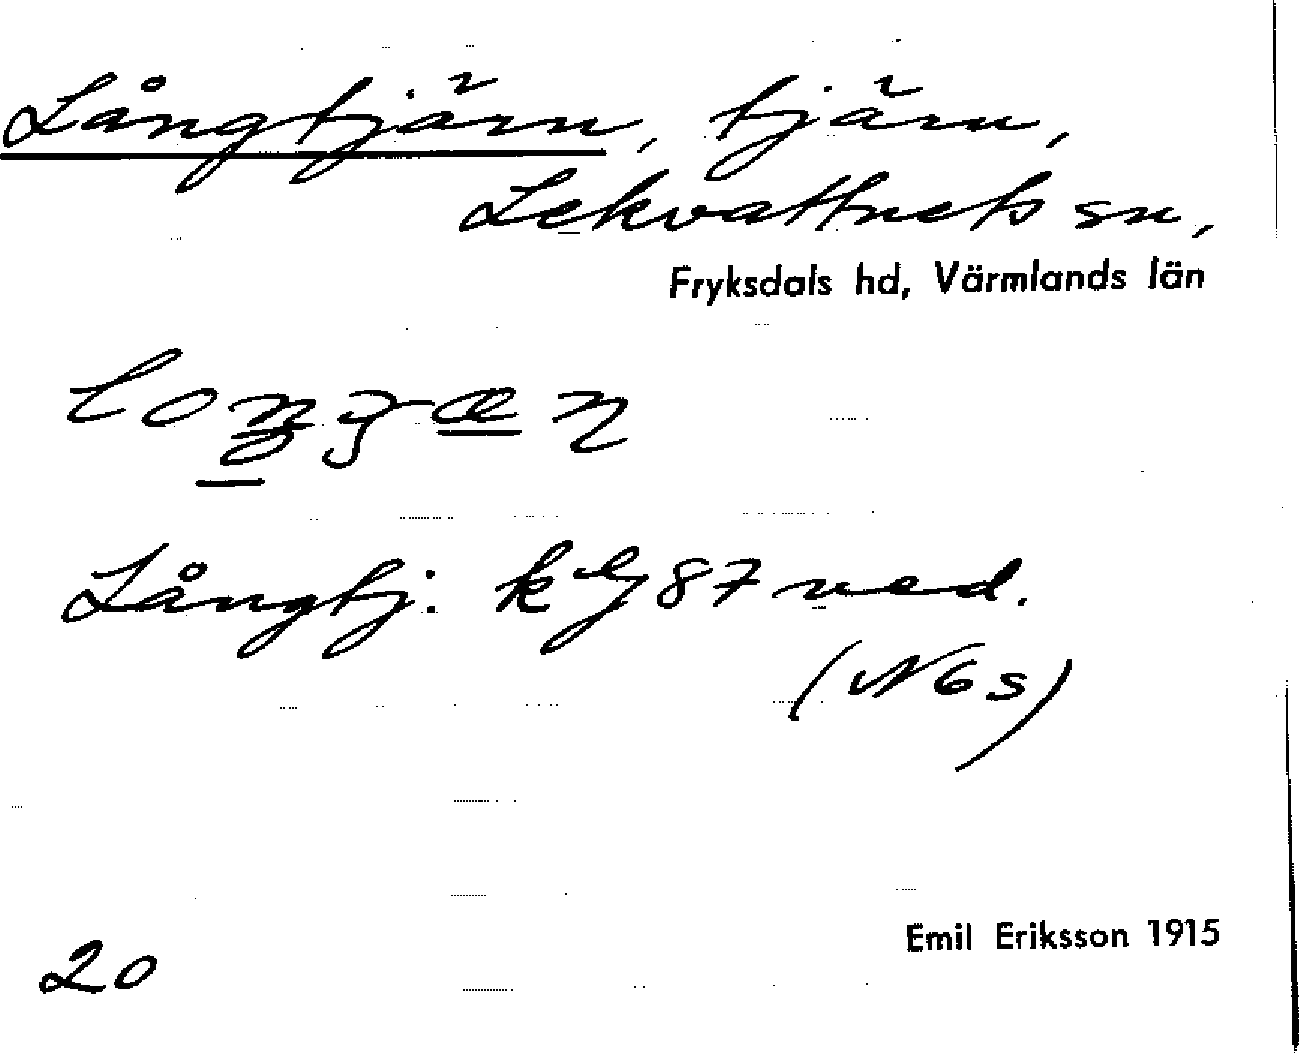 Långtjärn, tjärn,
Lekvattnets sn,
Fryksdals hd, Värmlands län
Långtj. kG 87 ned.
(N6s)
20
Emil Eriksson 1915